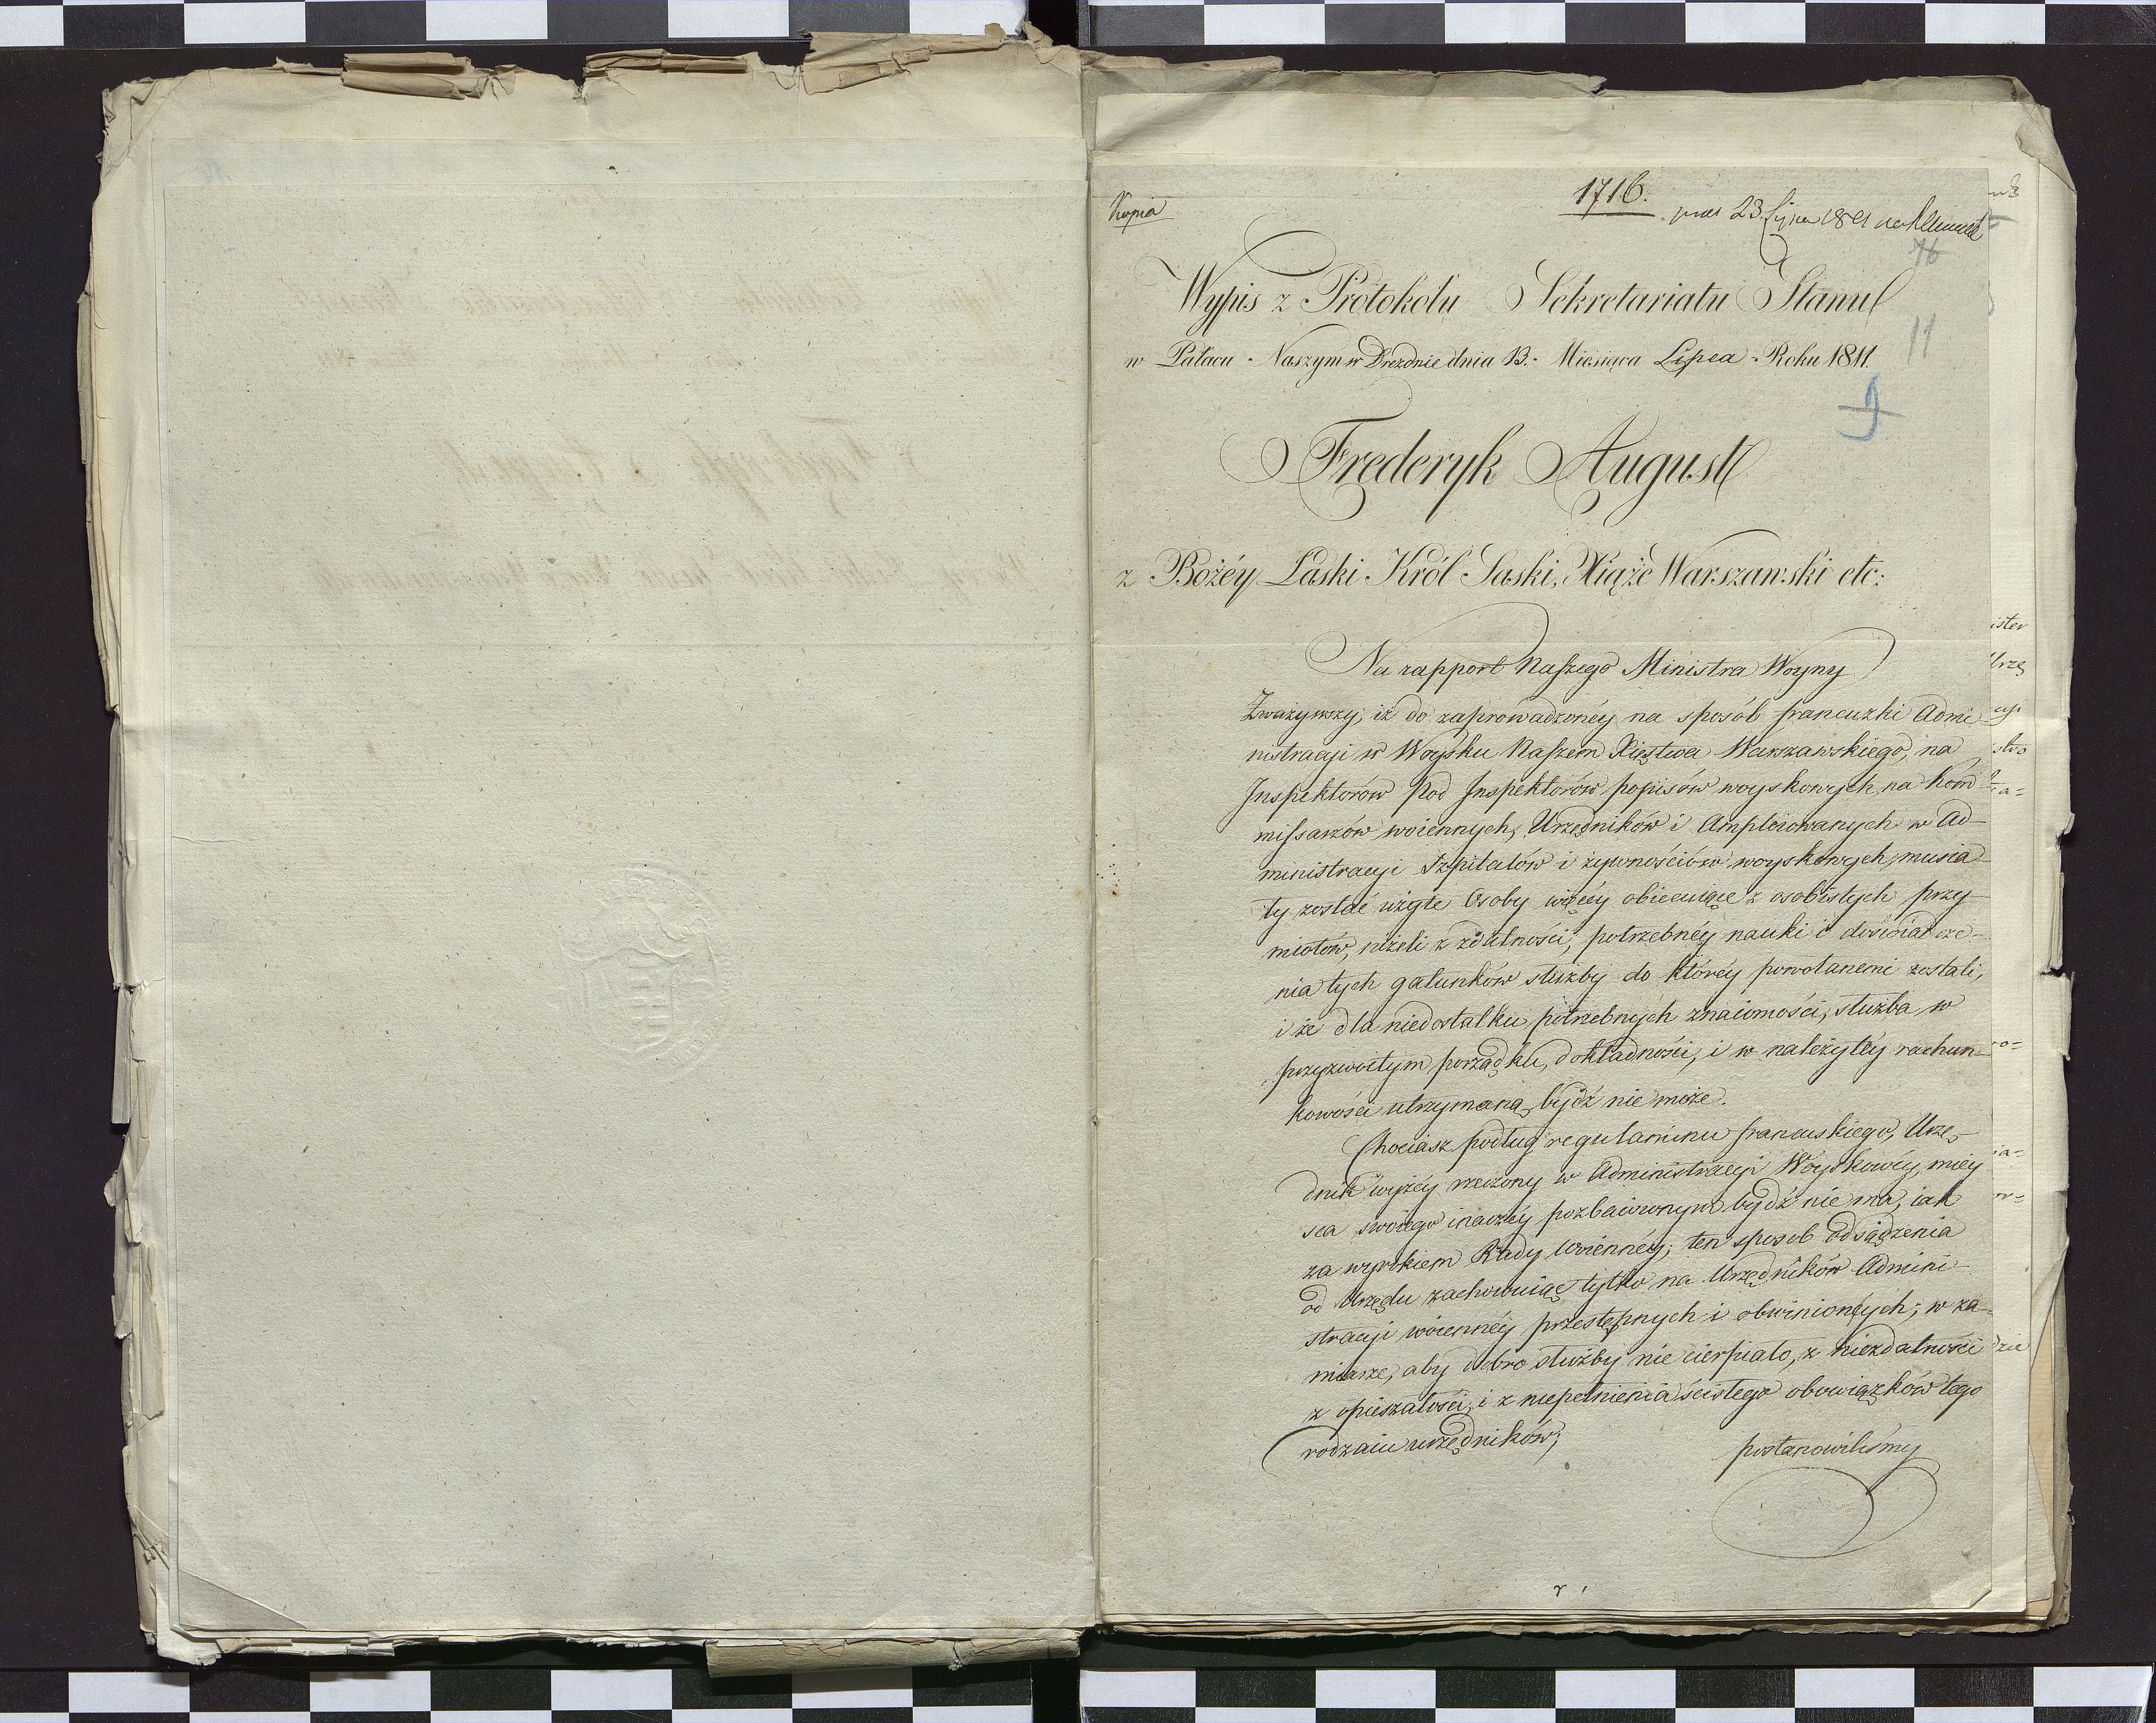 Kopia
1716.
23 Lipca 1811
76
11
9
Wypis z Protokółu Sekretariatu Stanu
w Pałacu Naszym w Dreznie dnia 13. Miesiąca Lipca Roku 1811.
Frederyk August
z Bożéy Łaski Król Saski, Xiąże Warszawski etc:
Na rapport Naszego Ministra Woyny
Zważywszy, iż do zaprowadzonéy na sposób francuzki Admi-
nistracyi w Woysku Naszem Xięstwa Warszawskiego, na
Inspektorów Pod Inspektorów popisów woyskowych, na Kom-
missarzów woiennych, Urzędników i Ampleiowanych w Ad-
ministracyi Szpitalów i żywnościów woyskowych, musia-
ły zostać użyte Osoby więcéy obiecuiące z osobistych przy-
miotów, niżeli z zdatności, potrzebnéy nauki i doświadcze-
nia tych gatunków służby do któréy powołanemi zostali,
i że dla niedostatku potrzebnych znaiomości, służba w
przyzwoitym porządku, dokładności, i w należytéy rachun-
kowości utrzymaną bydź nie może.
Chociasz podług regulaminu francuskiego, Urzę-
dnik wyżéy rzeczony w Administracyi Woyskowéy, miey-
sca swoiego inaczéy pozbawionym bydź nie ma, iak
za wyrokiem Rady woiennéy; ten sposob odsądzenia
od Urzędu zachowuiąc tylko na Urzędników Admini-
stracyi woiennéy przestępnych i obwinionych; w za-
miarze, aby dobro służby nie cierpiało, z niezdatności
z opieszałości, i z niepełnienia ścisłego obowiązków tego
rodzaiu urzędników; postanowiliśmy